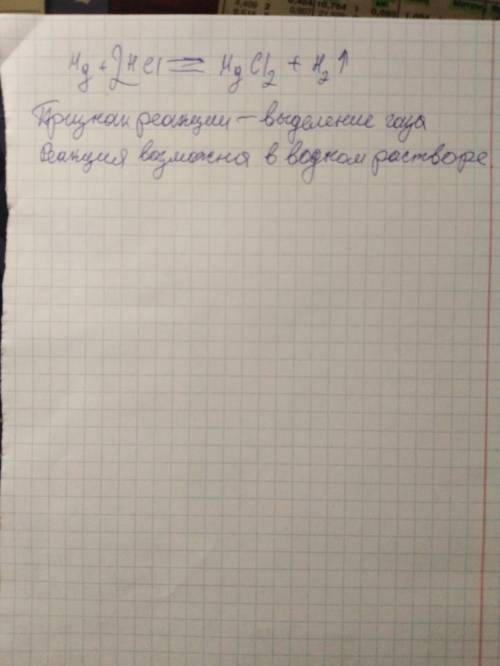 Hg + 2HCl = HgCl2 + H2↑
Признак реакции – выделение газа
Реакция возможна в водном растворе